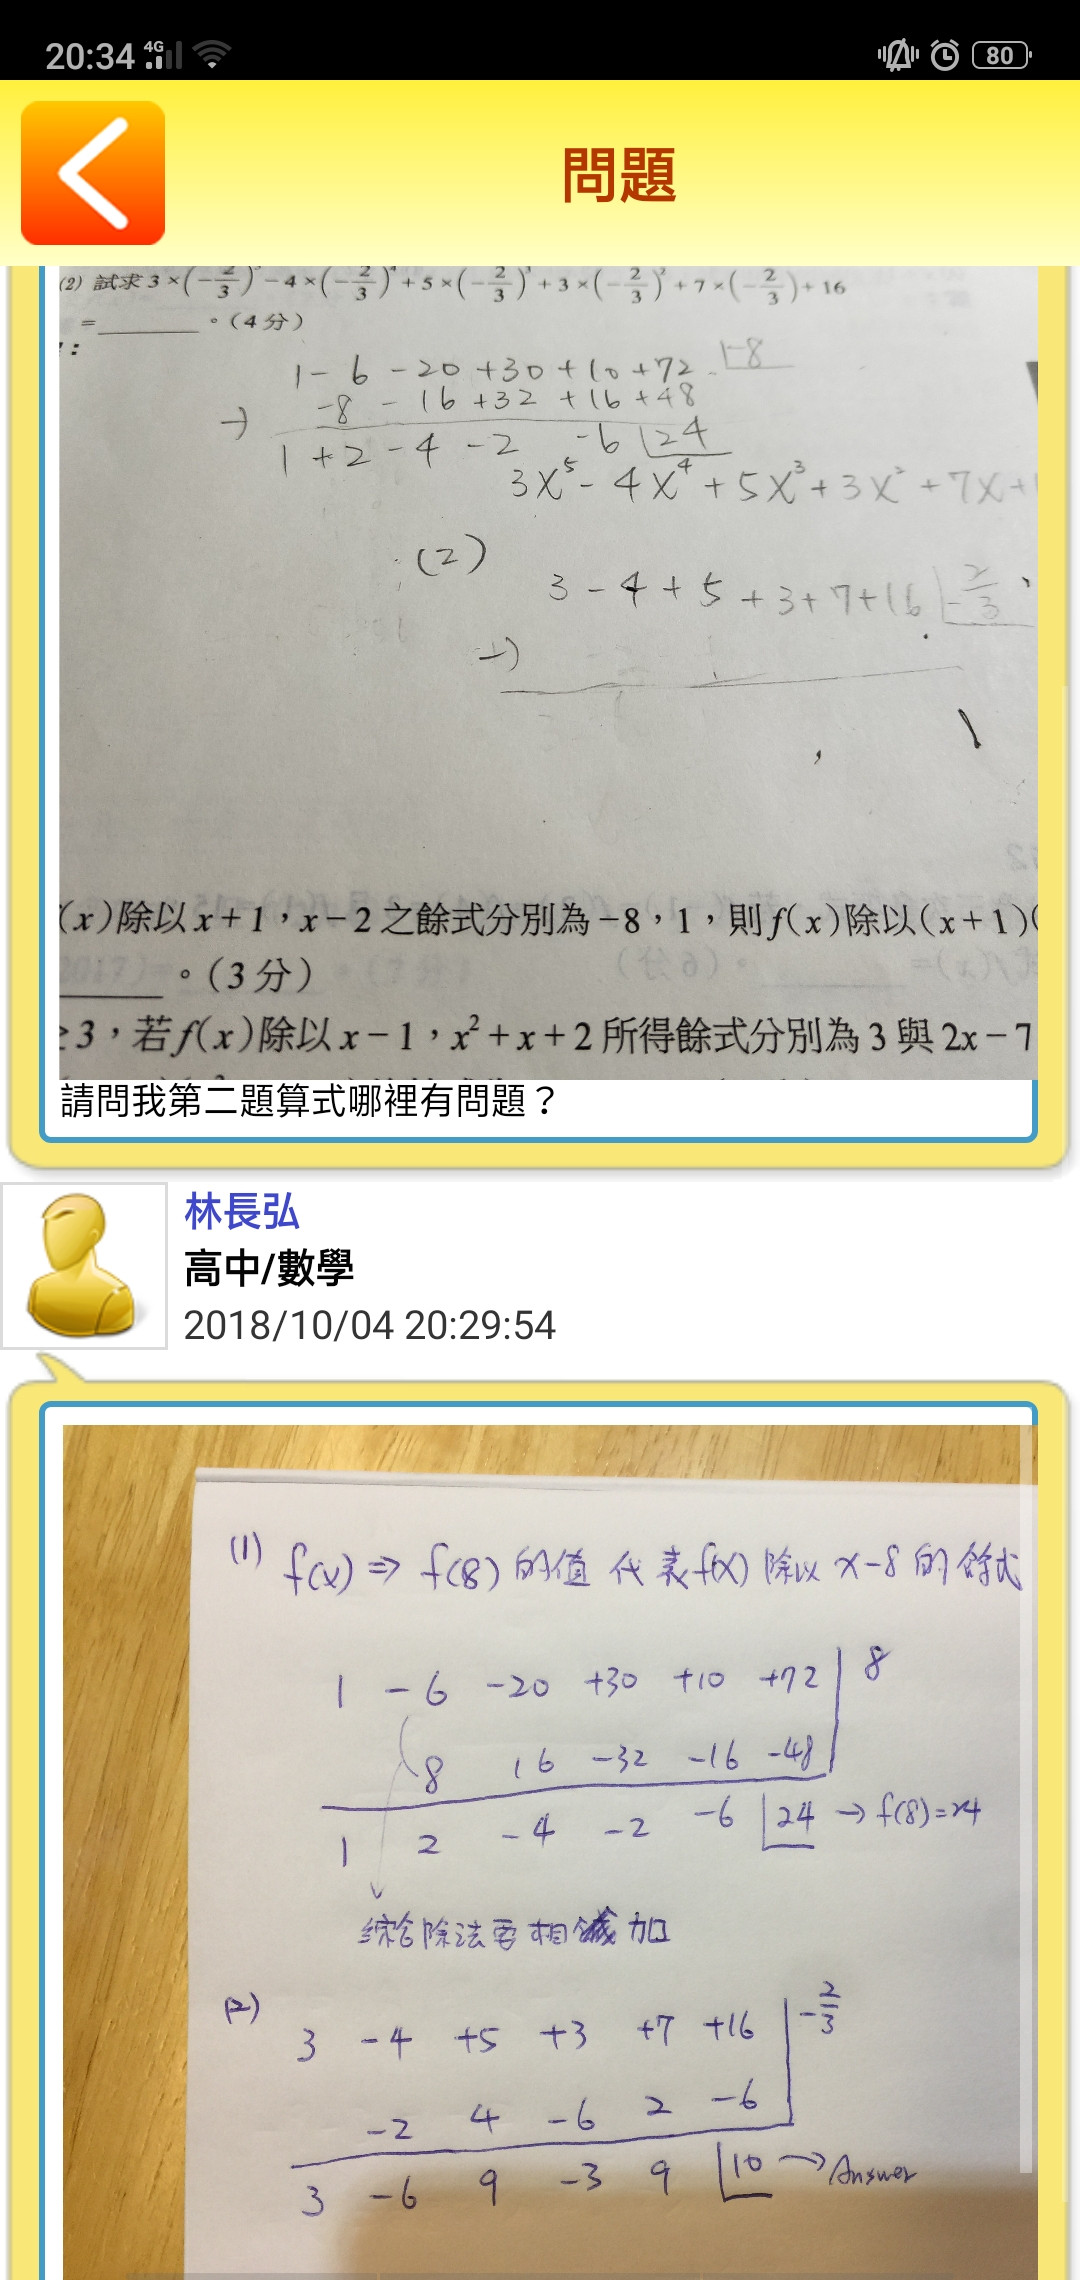 20:34 4G 80
問題
(2) 試求 3×(-2/3)⁵-4×(-2/3)⁴+5×(-2/3)³+3×(-2/3)²+7×(-2/3)+16
=______。(4分)
1-6-20+30+10+72 -8
→ -8-16+32+16+48
1+2-4-2 -6 24
3x⁵-4x⁴+5x³+3x²+7x+1
(2)
3-4+5+3+7+16 -2/3
→)
(x)除以x+1,x-2之餘式分別為-8,1,則f(x)除以(x+1)(
______。(3分)
≥3,若f(x)除以x-1,x²+x+2所得餘式分別為3與2x-7
請問我第二題算式哪裡有問題?
林長弘
高中/數學
2018/10/04 20:29:54
(1) f(x) ⇒ f(8) 的值 代表f(x) 除以 x-8 的餘式
1 -6 -20 +30 +10 +72 8
8 16 -32 -16 -48
1 2 -4 -2 -6 24 → f(8)=24
綜合除法要相加
(2)
3 -4 +5 +3 +7 +16 -2/3
-2 4 -6 2 -6
3 -6 9 -3 9 10 → Answer